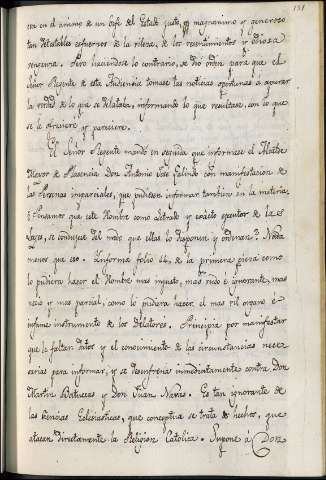 131
cea en el animo de un Gefe del Estado justo, magnanimo y generoso
tan detestables esfuerzos de la vileza, de los resentimientos y odiosa
venganza. Pero haviendose lo contrario, se dió orden para que el
Señor Regente de esta Audiencia tomase las noticias oportunas á apurar
la verdad de lo que se delataba, informando lo que resultase, con lo que
se le ofreciere y pareciere.
El Señor Regente mandó en seguida que informase el Alcalde
Mayor de Plasencia Don Antonio Jose Galindo con manifestacion de
las Personas imparciales, que pudiesen informar tambien en la materia.
¿Pensamos que este Hombre como Letrado y exácto executor de las
Leyes, se condujese del modo que ellas lo disponen y ordenan? Nada
menos que eso. Informa folio 14, de la primera pieza como
lo pudiera hacer el Hombre mas injusto, mas rudo é ignorante, mas
necio y mas parcial, como lo pudiera hacer el mas vil organo é
infame instrumento de los Delatores. Principia por manifestar
que le faltan datos y el conocimiento de las circunstancias nece
sarias para informar, y se desenfrena inmediatamente contra Don
Martin Batuecas y Don Juan Navas. Es tan ignorante de
las Ciencias Eclesiasticas, que conceptua se trata de hechos, que
atacan directamente la Religion Catolica. Supone á Don